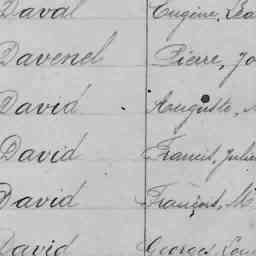 Daval Eugène, Léa
Davenel Pierre, Jo
David Auguste, M
David Francis, Julie
David François, M
David Georges, Lou